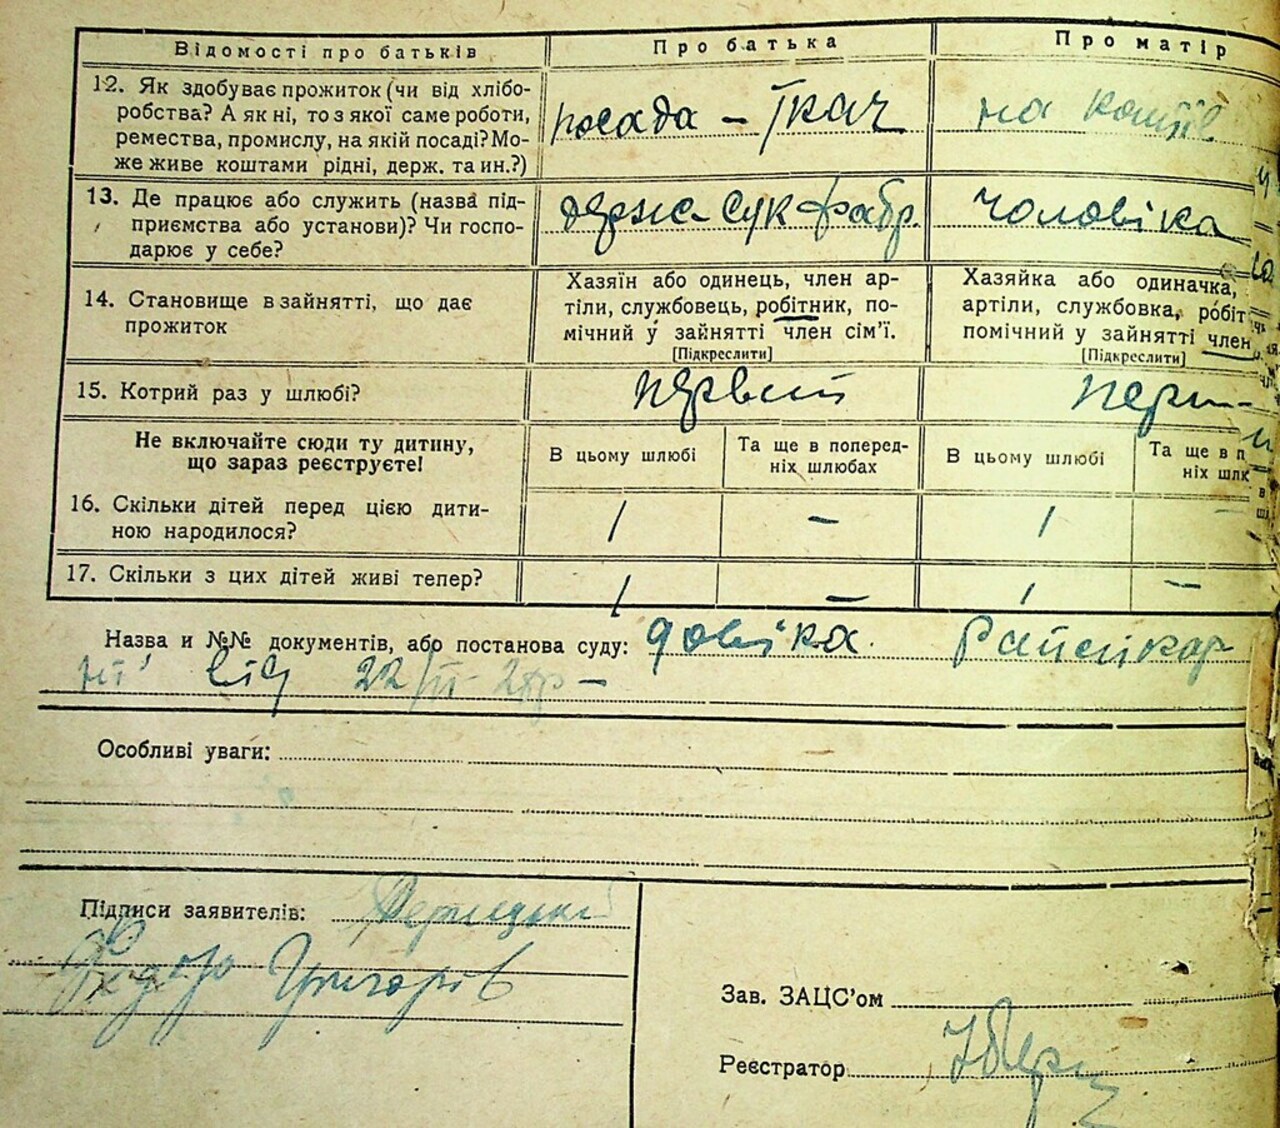 Відомості про батьків Про батька Про матір
12. Як здобуває прожиток (чи від хлібо-
робства? А як ні, то з якої саме роботи,
ремества, промислу, на якій посаді? Мо-
же живе коштами рідні, держ. та ин.?)
посада – Ткач на коштів
13. Де працює або служить (назва під-
приємства або установи)? Чи госпо-
дарює у себе?
держ- Сук фабр. чоловіка
14. Становище в зайнятті, що дає
прожиток
Хазяїн або одинець, член ар-
тілі, службовець, робітник, по-
мічний у зайнятті член сім'ї.
[Підкреслити]
Хазяйка або одиначка,
артілі, службовка, робіт
помічний у зайнятті член
[Підкреслити]
15. Котрий раз у шлюбі? первий перш-
Не включайте сюди ту дитину,
що зараз реєструєте!
В цьому шлюбі
Та ще в поперед-
ніх шлюбах
В цьому шлюбі
Та ще в п
ніх шлю
16. Скільки дітей перед цією дити-
ною народилося?
1 – 1 –
17. Скільки з цих дітей живі тепер? 1 – 1 –
Назва и №№ документів, або постанова суду: довідка
від 22/
Особливі уваги:
Підписи заявителів:
Федора Григорів
Зав. ЗАЦС'ом
Реєстратор